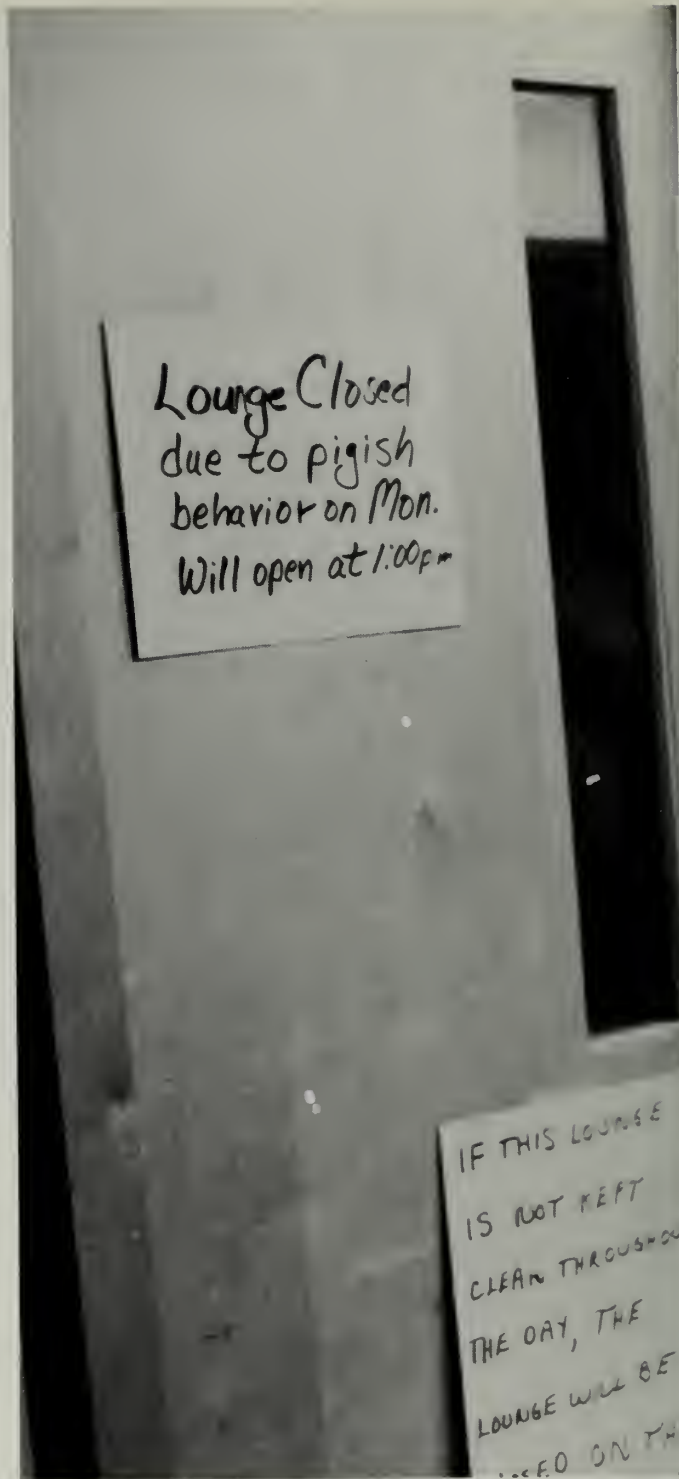 Lounge Closed
due to pigish
behavior on Mon.
Will open at 1:00pm
IF THIS LOUNGE
IS NOT KEPT
CLEAN
THE DAY, THE
LOUNGE WILL BE
ON